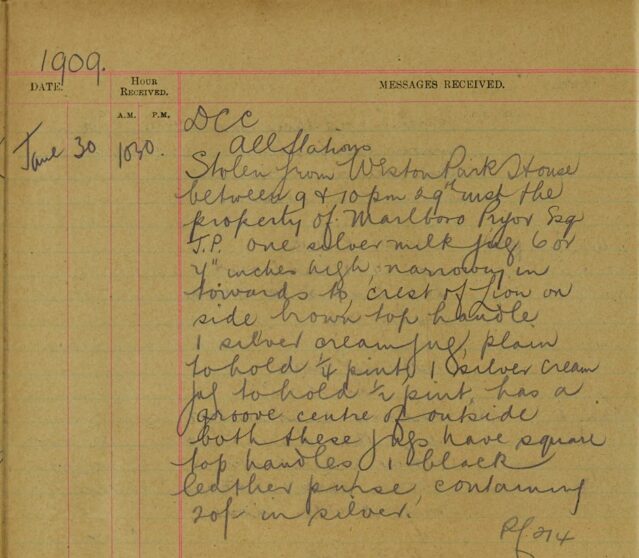 1909.
DATE. HOUR RECEIVED. MESSAGES RECEIVED.
A.M. P.M.
DCC
June 30 1030. All Stations
Stolen from Weston Park House
between 9 & 10 pm 29th inst the
property of Marlboro Pryor Esq
J.P. one silver milk jug 6 or
7" inches high, narrowing in
towards to, crest of Lion on
side brown top handle
1 silver cream jug, plain
to hold 1/4 pint, 1 silver cream
jug to hold 1/2 pint, has a
groove centre of outside
both these jugs have square
top handles, 1 black
leather purse, containing
20/- in silver.